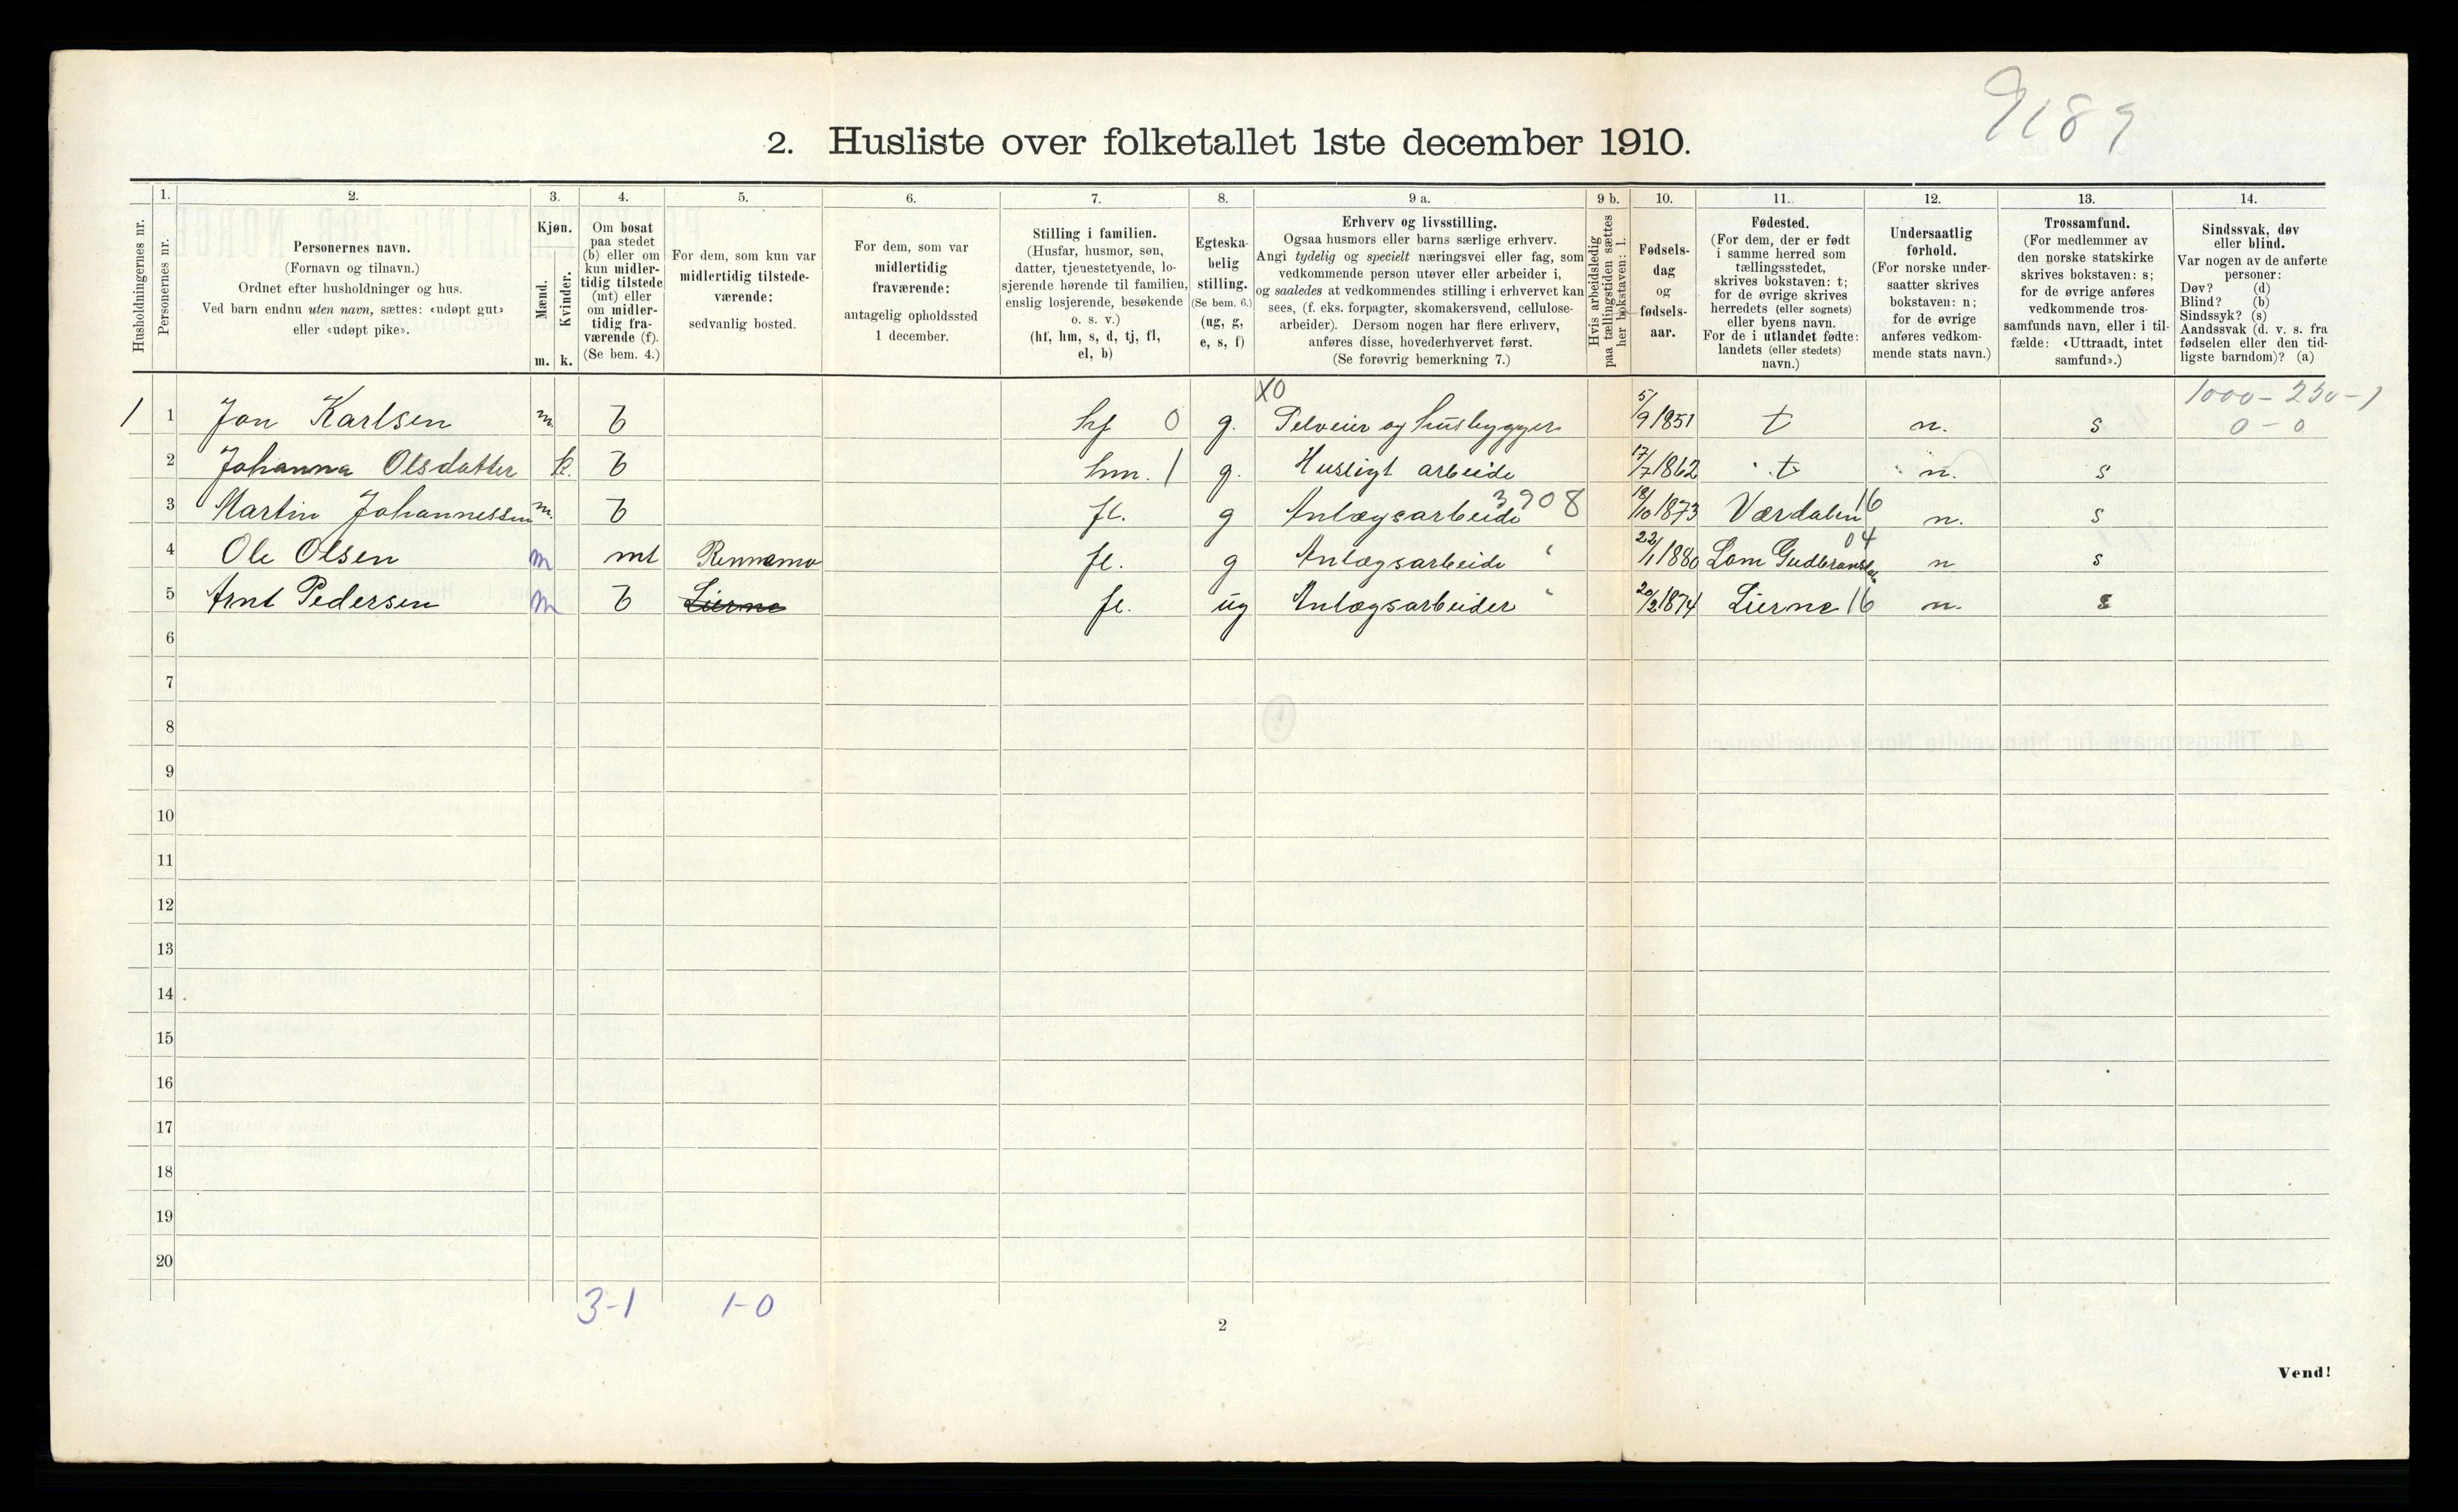 9189
2. Husliste over folketallet 1ste december 1910.
Husholdningernes nr.
1.
Personernes nr.
2.
Personernes navn.
(Fornavn og tilnavn.)
Ordnet efter husholdninger og hus.
Ved barn endnu uten navn, sættes: «udøpt gut»
eller «udøpt pike».
3.
Kjøn.
Mænd.
Kvinder.
m. k.
4.
Om bosat
paa stedet
(b) eller om
kun midler-
tidig tilstede
(mt) eller
om midler-
tidig fra-
værende (f).
(Se bem. 4.)
5.
For dem, som kun var
midlertidig tilstede-
værende:
sedvanlig bosted.
6.
For dem, som var
midlertidig
fraværende:
antagelig opholdssted
1 december.
7.
Stilling i familien.
(Husfar, husmor, søn,
datter, tjenestetyende, lo-
sjerende hørende til familien,
enslig losjerende, besøkende
o. s. v.)
(hf, hm, s, d, tj, fl,
el, b)
8.
Egteska-
belig
stilling.
(Se bem. 6.)
(ug, g,
e, s, f)
9 a.
Erhverv og livsstilling.
Ogsaa husmors eller barns særlige erhverv.
Angi tydelig og specielt næringsvei eller fag, som
vedkommende person utøver eller arbeider i,
og saaledes at vedkommendes stilling i erhvervet kan
sees, (f. eks. forpagter, skomakersvend, cellulose-
arbeider). Dersom nogen har flere erhverv,
anføres disse, hovederhvervet først.
(Se forøvrig bemerkning 7.)
9 b.
Hvis arbeidsledig
paa tællingstiden sættes
her bokstaven: l.
10.
Fødsels-
dag
og
fødsels-
aar.
11.
Fødested.
(For dem, der er født
i samme herred som
tællingsstedet,
skrives bokstaven: t;
for de øvrige skrives
herredets (eller sognets)
eller byens navn.
For de i utlandet fødte:
landets (eller stedets)
navn.)
12.
Undersaatlig
forhold.
(For norske under-
saatter skrives
bokstaven: n;
for de øvrige
anføres vedkom-
mende stats navn.)
13.
Trossamfund.
(For medlemmer av
den norske statskirke
skrives bokstaven: s;
for de øvrige anføres
vedkommende tros-
samfunds navn, eller i til-
fælde: «Uttraadt, intet
samfund».)
14.
Sindssvak, døv
eller blind.
Var nogen av de anførte
personer:
Døv? (d)
Blind? (b)
Sindssyk? (s)
Aandssvak (d. v. s. fra
fødselen eller den tid-
ligste barndom)? (a)
X0 1000-250-1
1 1 Jon Karlsen m. b hf 0 g. Selveier og husbygger 5/9 1851 t n. s 0-0
2 Johanna Olsdatter k. b hm. 1 g. Husligt arbeide 17/7 1862 t n. s
3 Martin Johannessen m. b fl. g Anlægsarbeide 3908 18/10 1873 Værdalen 16 n. s
4 Ole Olsen m mt Rennemo fl. g Anlægsarbeide " 22/1 1880 Lom Gudbransdalen 04 n s
5 Arnt Pedersen m b Lierne fl. ug Anlægsarbeider " 20/2 1874 Lierne 16 n. s
6
7
8
9
10
11
12
13
14
15
16
17
18
19
20
3-1 1-0
2
Vend!